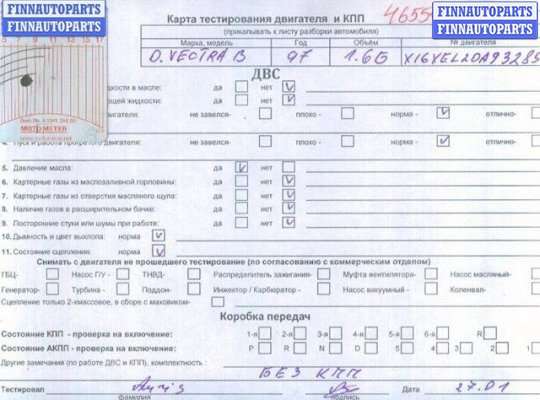 FINNAUTOPARTS
FINNAUTOPARTS
FINNAUTOPARTS
FINNAUTOPARTS
Карта тестирования двигателя и КПП
(прикалывать к листу разборки автомобиля)
Марка, модель Год Объём № двигателя
O. VECTRA B 97 1.6Б
ДВС
в масле: да нет
жидкости: да нет
двигателя: не завелся- плохо - норма - отлично-
4. Пуск и работа прогретого двигателя: не завелся- плохо - норма - отлично-
5. Давление масла: да нет
6. Картерные газы из маслозаливной горловины: да нет
7. Картерные газы из отверстия масляного щупа: да нет
8. Наличие газов в расширительном бачке: да нет
9. Посторонние стуки или шумы при работе: да нет
10. Дымность и цвет выхлопа: норма
11. Состояние сцепления: норма
Снимать с двигателя не прошедшего тестирование (по согласованию с коммерческим отделом)
ГБЦ- Насос ГУ - ТНВД- Распределитель зажигания- Муфта вентилятора- Насос масляный-
Генератор- Турбина - Поддон- Инжектор / Карбюратор - Насос вакуумный - Коленвал-
Сцепление только 2-хмассовое, в сборе с маховиком-
Коробка передач
Состояние КПП - проверка на включение: 1-я 2-я 3-я 4-я 5-я 6-я R
Состояние АКПП - проверка на включение: P R N D 5 4 3 2 1
Другие замечания (по работе ДВС и КПП), комплектность :
БЕЗ КПП
Тестировал Дата 27.01
фамилия подпись
MOTOMETER